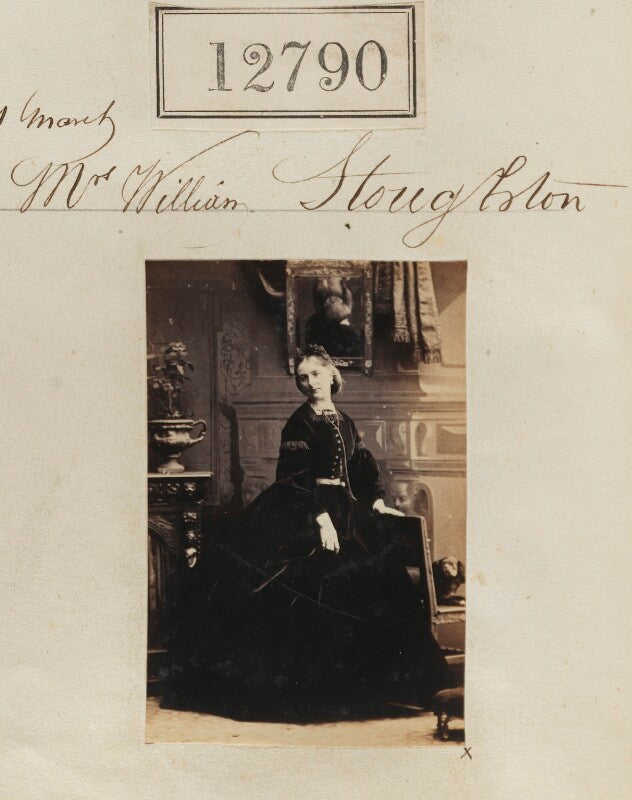 12790
March
Mrs William Stoughton
x